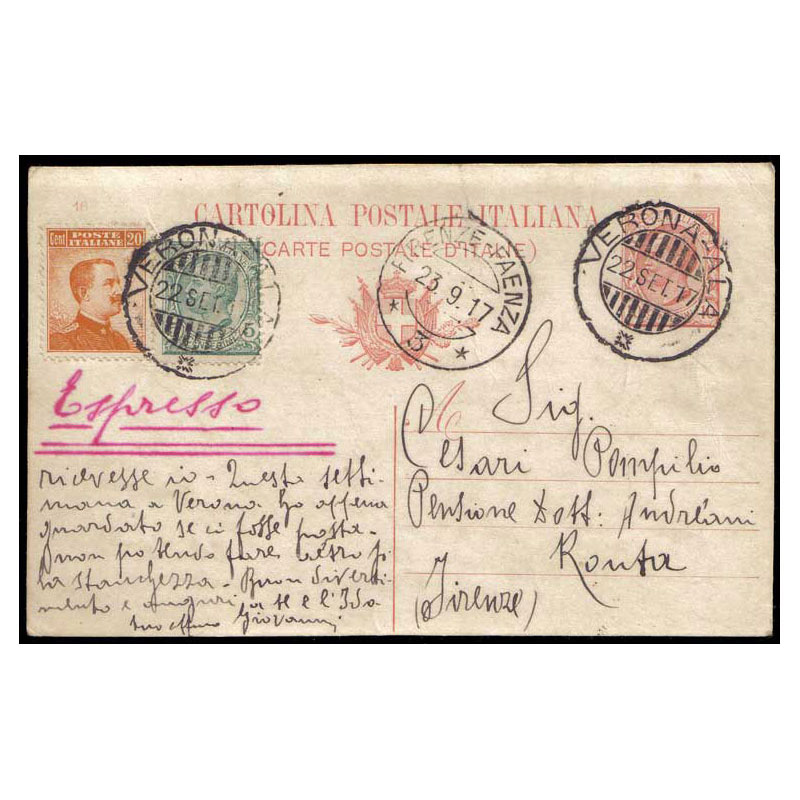 16
CARTOLINA POSTALE ITALIANA
(CARTE POSTALE D'ITALIE)
Cent POSTE ITALIANE 20
VERONA-ALA
22 SET.
5
FIRENZE-FAENZA
23.9.17
* 3 *
VERONA-ALA
22 SET. 17
Espresso
ricevesse io - Questa setti-
mana a Verona ho appena
guardato se ci fosse posta -
non potendo fare altro p
la stanchezza - Buon diverti-
mento e auguri a te e l'Ida
tuo affmo Giovanni
A
Sig.
Cesari Pompilio
Pensione Dott: Andreani
Ronta
(Firenze)